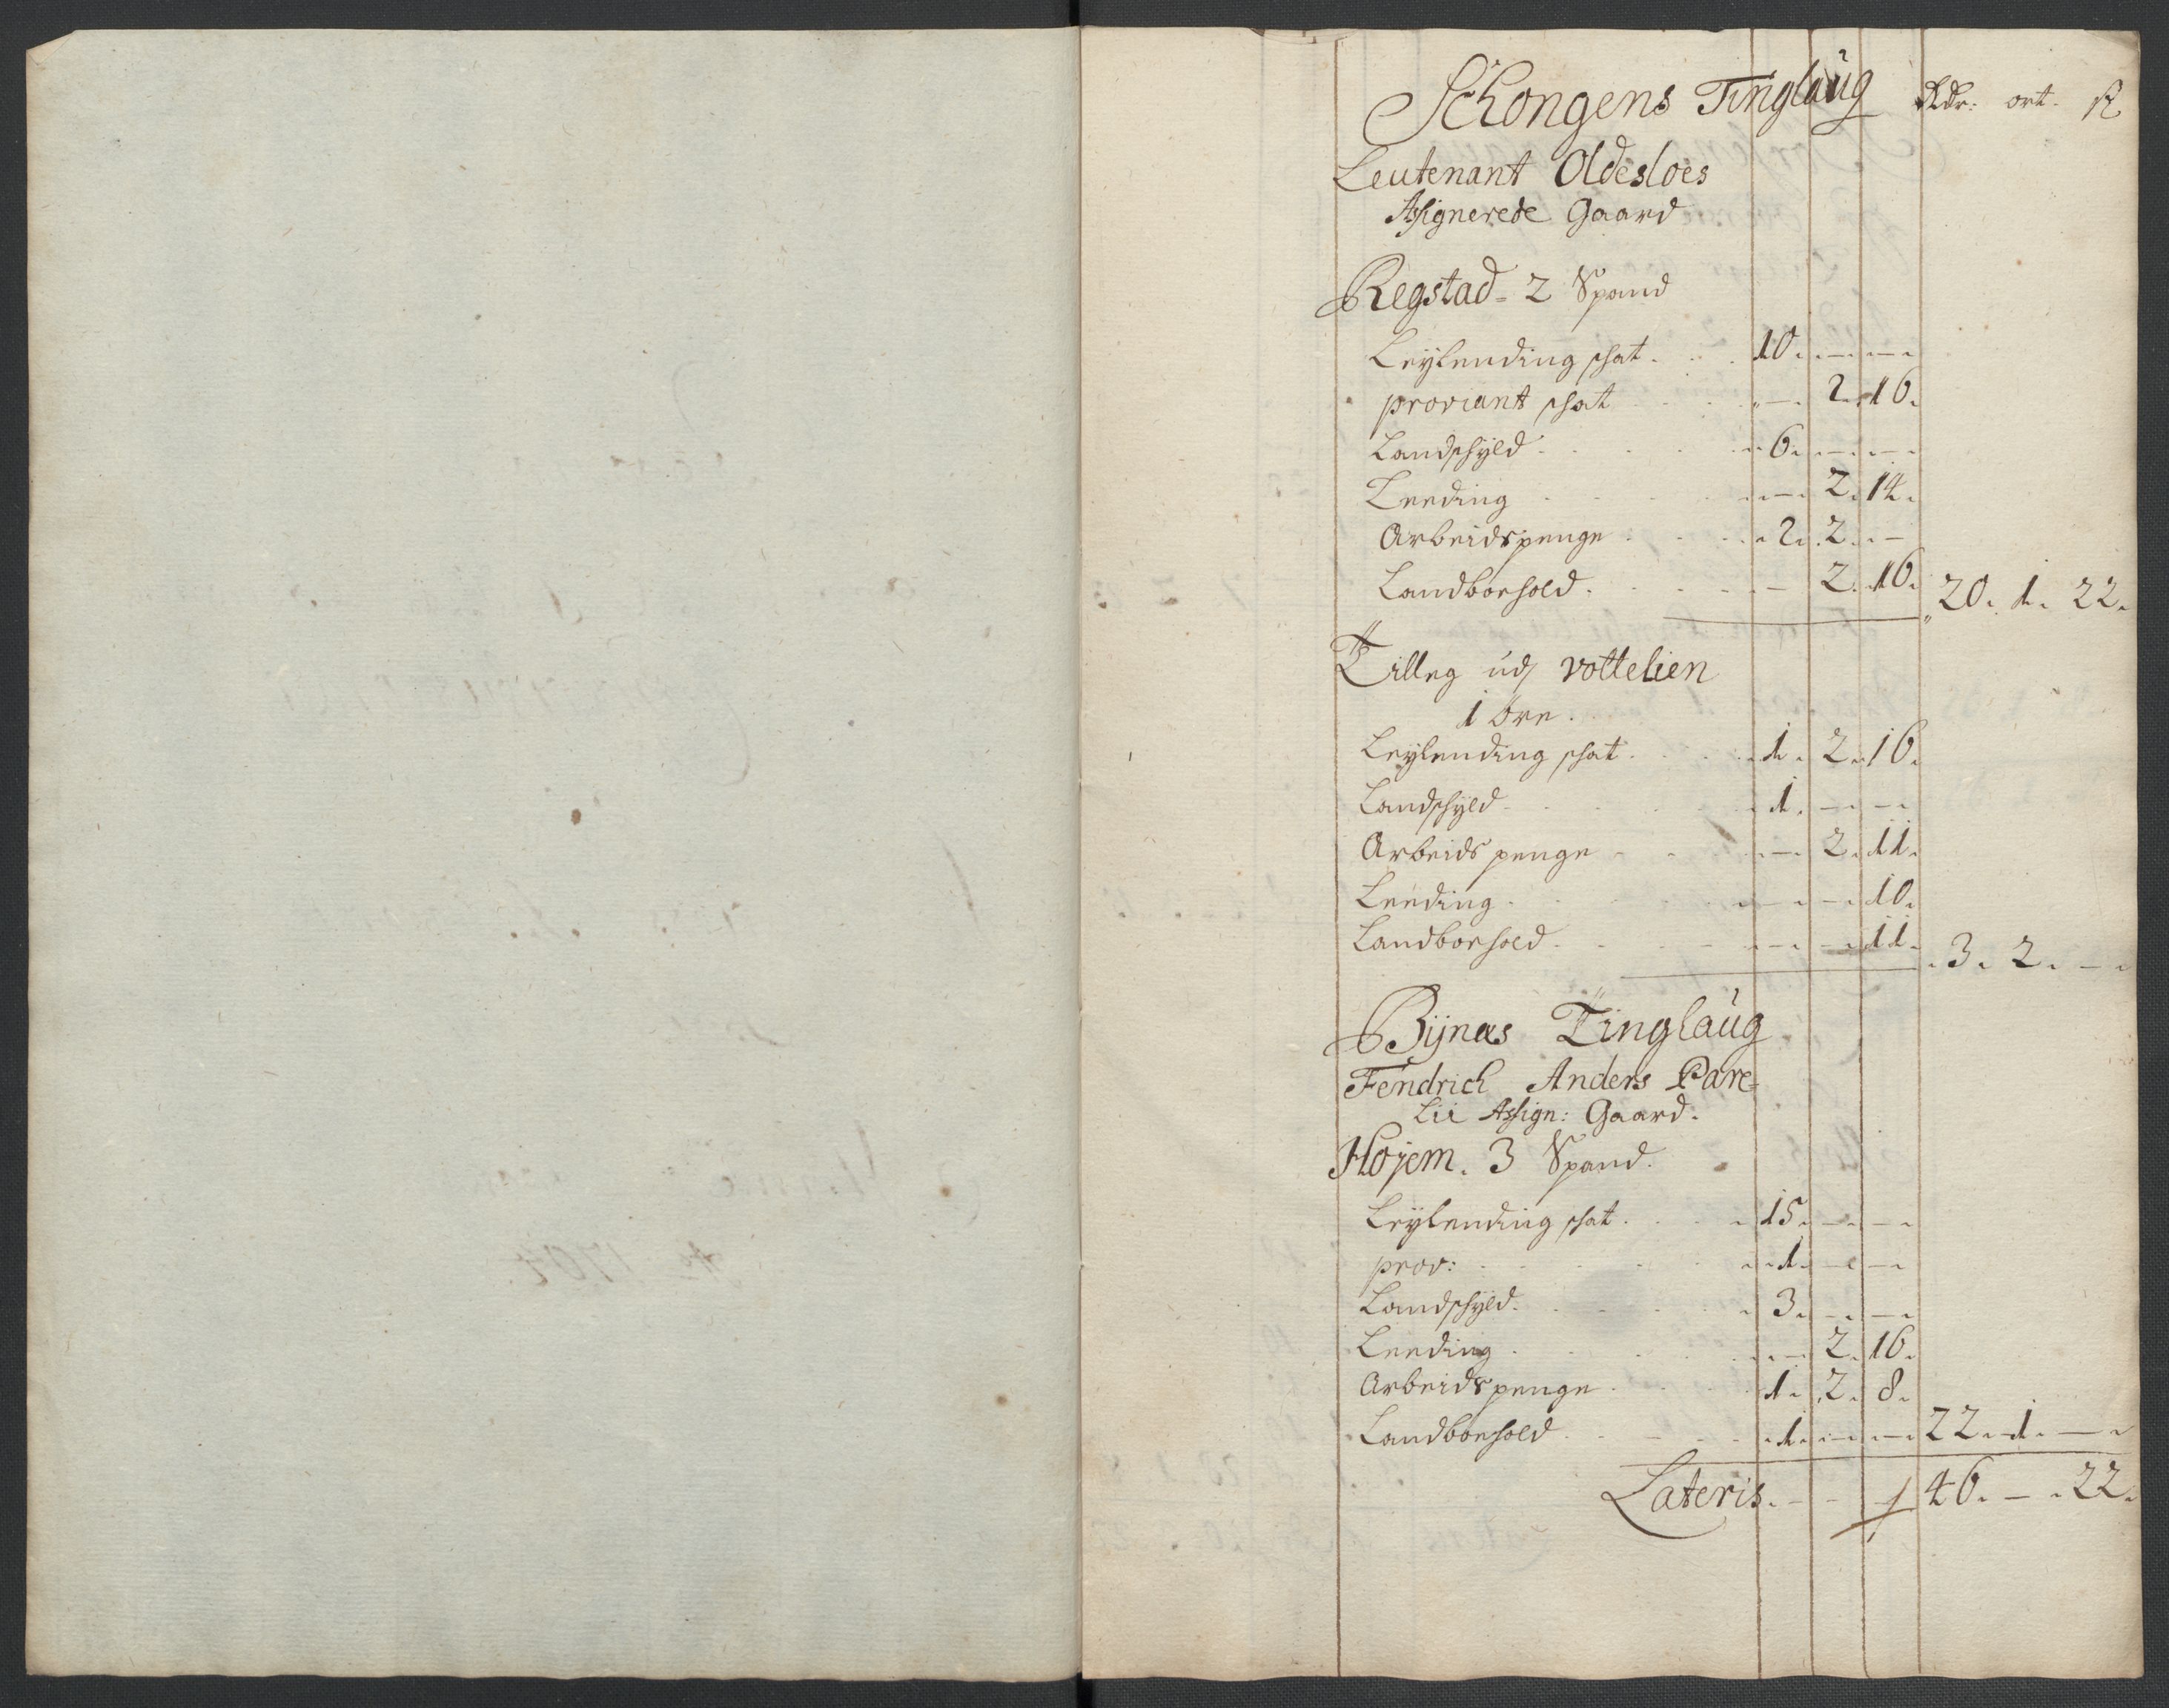 Schongens Tinglaug Rdr: ort. ß
Leutenant Oldesloes
Assignerede Gaard
Regstad = 2 Spand
Leylending schat . . . 10. — —
proviant schat . . . — 2. 16.
Landschyld . . . 6. — —
Leeding . . . — 2. 14.
Arbeidspenge . . . 2. 2. —
Landboehold . . . — 2. 16. 20. 1. 22.
Tilleg udj vottelien
1 Øre.
Leylending schat . . . 1. 2. 16.
Landschyld . . . 1. — —
Arbeids penge . . . — 2. 11.
Leeding . . . — — 10.
Landboehold . . . — — 11. 3. 2. —
Bÿnæs Tinglaug
Fendrich Anders Pare=
lii Assign: Gaard.
Høÿem. 3 Spand.
Leylending schat . . . 15. — —
prov: . . . 1. — —
Landschyld . . . 3. — —
Leeding . . . — 2. 16.
Arbeidspenge . . . 1. 2. 8.
Landboehold . . . 1. — — 22. 1. —
Lateris . . . 46. — 22.